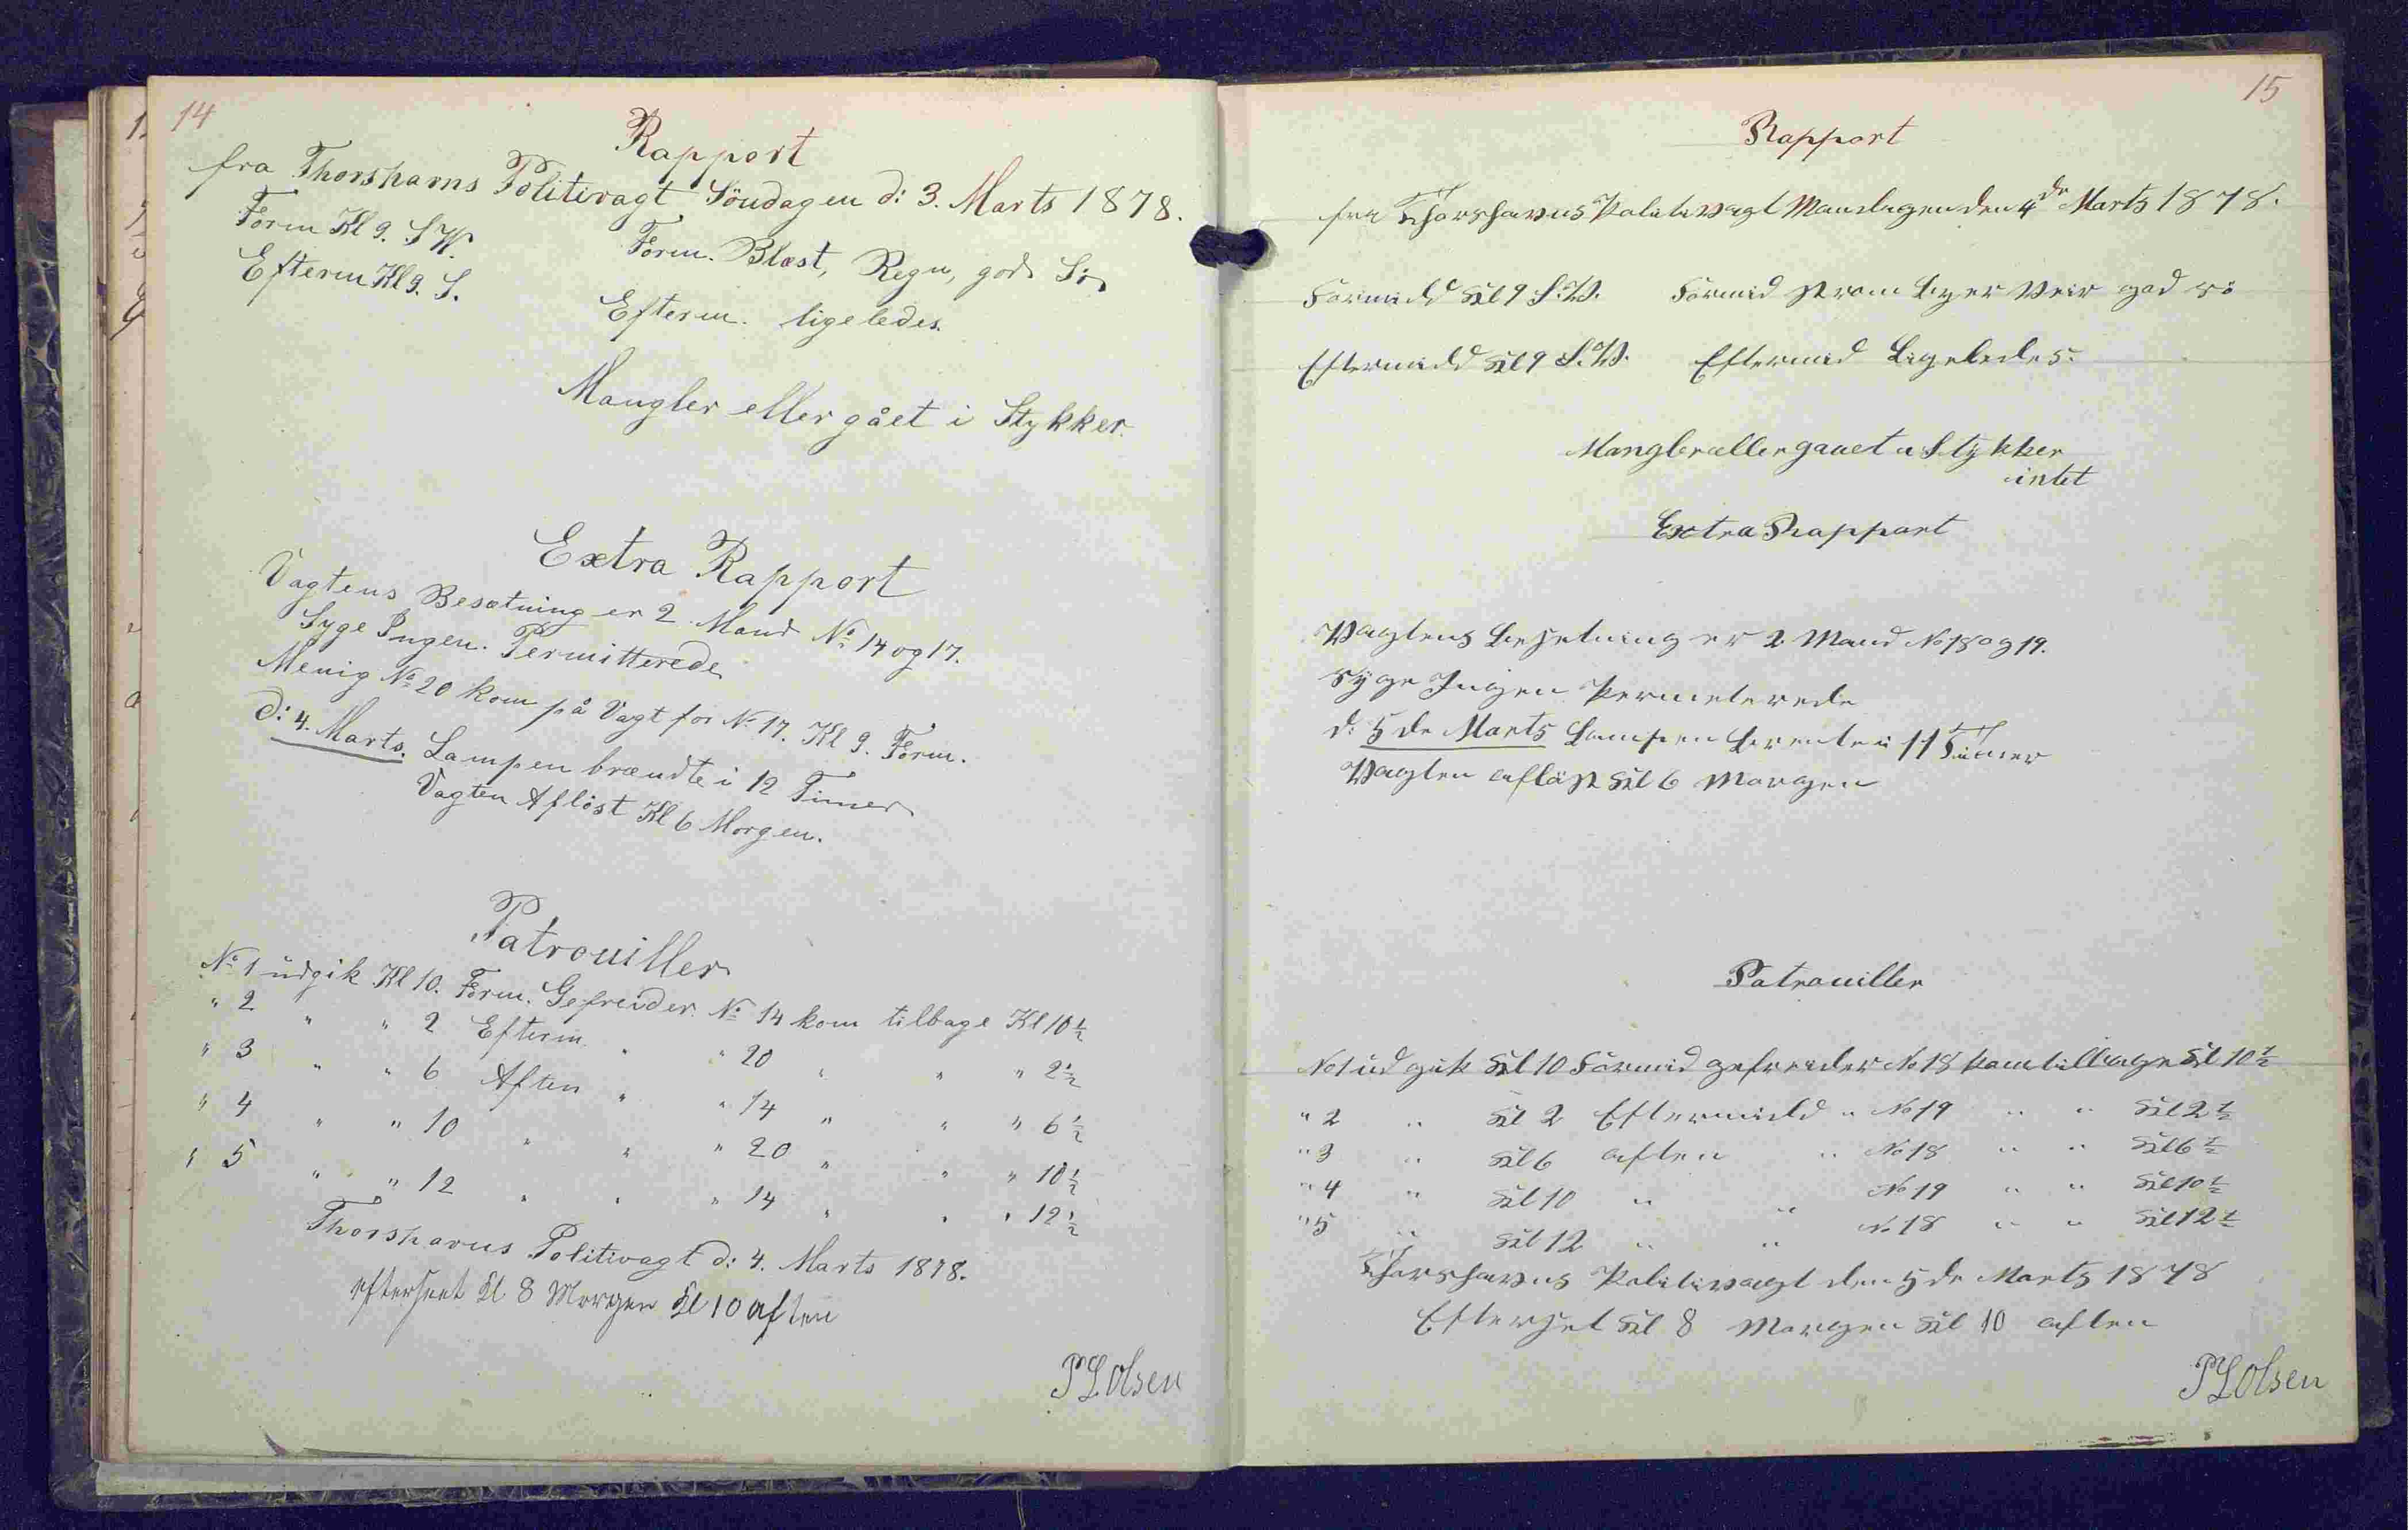 14
Rapport
fra Thorshavns Politivagt Söndagen d: 3. Marts 1878.
Form Kl 9. S W. Form. Blæst, Regn, god Sö
Efterm Kl 9. S. Efterm. ligeledes.
Mangler eller gået i Stykker.
Extra Rapport
Vagtens Besætning er 2 Mand No 14 og 17.
Syge Ingen. Permitterede
Menig No 20 kom på Vagt for No 17. Kl 9. Form.
d: 4. Marts. Lampen brændte i 12 Timer
Vagten Aflöst Kl 6 Morgen.
Patrouiller
No 1 udgik Kl 10. Form. Gefreider No 14 kom tilbage Kl 10 1/2
" 2 " " 2 Efterm. " " 20 " " " 2 1/2
" 3 " " 6 Aften " " 14 " " " 6 1/2
" 4 " " 10 " " " 20 " " " 10 1/2
" 5 " " 12 " " " 14 " " " 12 1/2
Thorshavns Politivagt d: 4. Marts 1878.
efterseet Kl 8 Morgen Kl 10 aften
PL Olsen
15
Rapport
fra Thorshavns Politivagt Mandagen den 4de Marts 1878.
Formidd Kl 9 S.V. Formid Byer Veir god sö
Eftermidd Kl 9 S.V. Eftermid Ligeledes.
Mangler eller gaaet i Stykker
intet
Extra Rapport
Vagtens Besetning er 2 Mand No 18 og 19.
Syge Ingen Permeterede
d: 5de Marts Lampen brente i 11 Timer
Vagten aflöst Kl 6 Morgen
Patrouiller
No 1 udgik Kl 10 Formid gefreider No 18 kom tilbage Kl 10 1/2
" 2 " Kl 2 Eftermidd " No 19 " " Kl 2 1/2
" 3 " Kl 6 aften " No 18 " " Kl 6 1/2
" 4 " Kl 10 " " No 19 " " Kl 10 1/2
" 5 " Kl 12 " " No 18 " " Kl 12 1/2
Thorshavns Politivagt den 5de Marts 1878
Efterset Kl 8 Morgen Kl 10 aften
PL Olsen